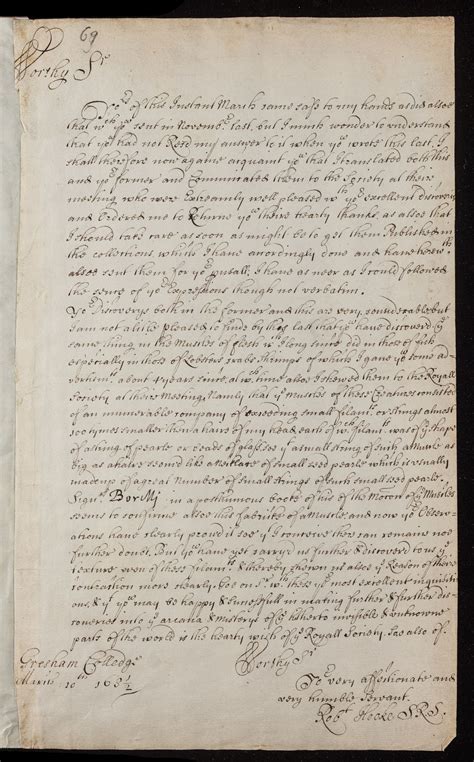 69
Worthy Sr
Yors of this Instant March came safe to my hands as did alsoe
that wch yu sent in Novembr last, but I much wonder to understand
that yu had not Recd my answer to it when yu wrote this last. I
shall therefore now againe acquaint yu that I translated both this
and yr former and Comunicated them to the Society at their
meeting who were Extreamly well pleased wth yr excellent discoverys
and Ordered me to Returne yu there hearty thanks, as also that
I should take care as soon as might be to get them Published in
the collections, which I have accordingly done and have
alsoe sent them for yr I have as neer as I could followed
the sence of yr Expressions though not verbatim.
Yr Discoverys both in the former and this are very considerable but
I am not a little pleased to find by this last that yu have discoverd ye
same thing in the Muscles of flesh wch I long since did in those of fish
especially in those of Lobsters crabs shrimps of which I gave yu some ad-
vertismt about 4 years since, at wch time also I shewed them to the Royall
Society at their Meeting, Namly that ye Muscles of these Creatures consisted
of an inumerable company of exceeding small filamts or strings almost
100 times smaller then a hair of my head, each of wch filamts was of ye shape
of a string of pearls or beads of glass, see yt a small string of such a Muscle as
big as a hair seemd like a Necklace of small seed pearls which is usually
made up of a great Number of small strings of such small seed pearls.
Signr Borelli in a posthumous booke of his of the Motion of ye Muscles
seems to confirme alsoe this fabrick of a Muscle, and now yr Observ-
ations have clearly proud it soe yt I conceive ther can remaine noe
further doubt. But yu have yet carryd us further & discoverd to us ye
texture even of these filamts & thereby shewn us alsoe ye Reason of there
contraction more clearly. Goe on Sr wth these yr most excellent inquisiti-
ons, & yt yu may be happy & succesfull in making further & further dis-
coveries into ye arcana & misterys of ye hitherto invisible & unknowne
parts of the world is the hearty wish of ye Royall Society. as also of.
Worthy Sr
Gresham Colledge
March 10th 168½
Yor very affectionate and
very humble Servant.
Robt Hooke S.R.S.